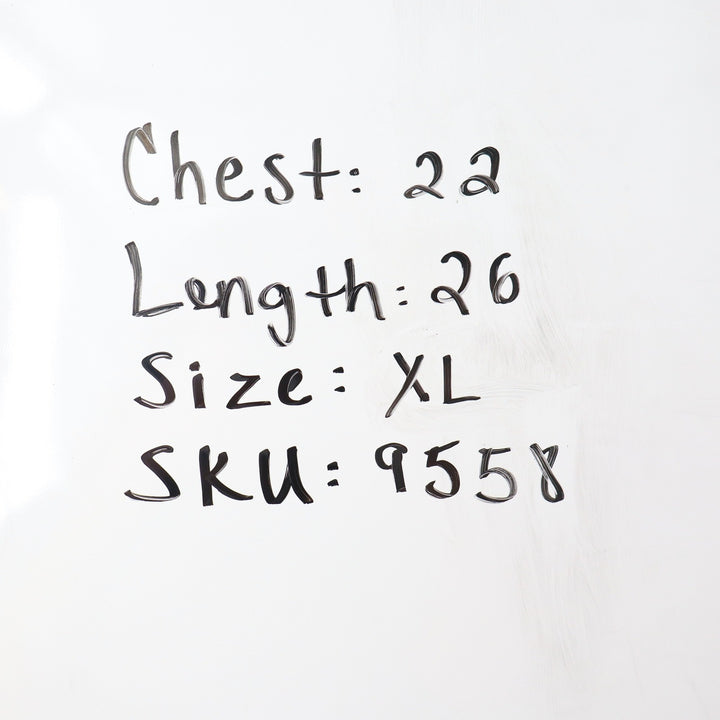 Chest: 22
Length: 26
Size: XL
SKU: 9558